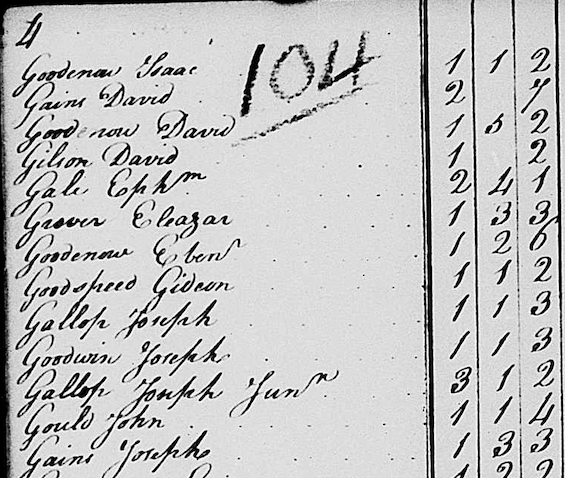 4
104
Goodenow Isaac 1 1 2
Gains David 2 7
Goodenow David 1 5 2
Gilson David 1 2
Gale Ephm 2 4 1
Grover Eleazar 1 3 3
Goodenow Ebenr 1 2 6
Goodspeed Gideon 1 1 2
Gallop Joseph 1 1 3
Goodwin Joseph 1 1 3
Gallop Joseph Junr 3 1 2
Gould John 1 1 4
Gains Joseph 1 3 3
1 2 2